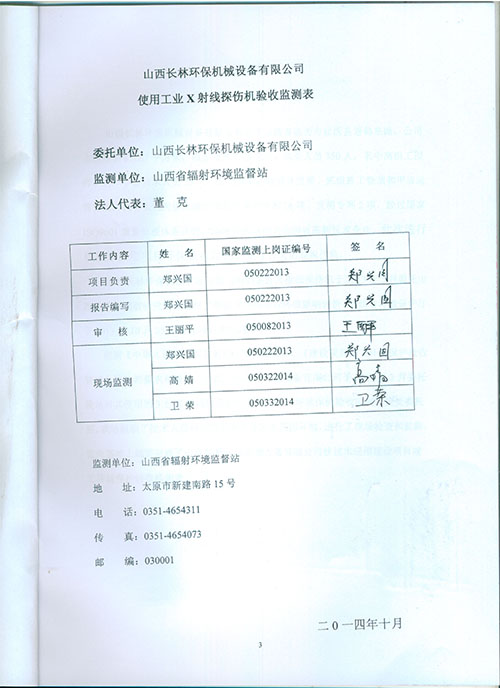 山西长林环保机械设备有限公司
使用工业 X 射线探伤机验收监测表
委托单位：山西长林环保机械设备有限公司
监测单位：山西省辐射环境监督站
法人代表：董 克
工作内容 姓 名 国家监测上岗证编号 签 名
项目负责 郑兴国 050222013 郑兴国
报告编写 郑兴国 050222013 郑兴国
审 核 王丽平 050082013 王丽平
现场监测 郑兴国 050222013 郑兴国
高 婧 050322014 高婧
卫 荣 050332014 卫荣
监测单位：山西省辐射环境监督站
地 址：太原市新建南路 15 号
电 话：0351-4654311
传 真：0351-4654073
邮 编：030001
二〇一四年十月
3